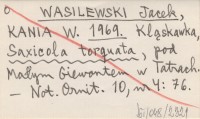 WASILEWSKI Jacek,
KANIA W. 1969. Kląskawka,
Saxicola torquata, pod
Małym Giewontem w Tatrach.
— Not. Ornit. 10, nr 4: 76.